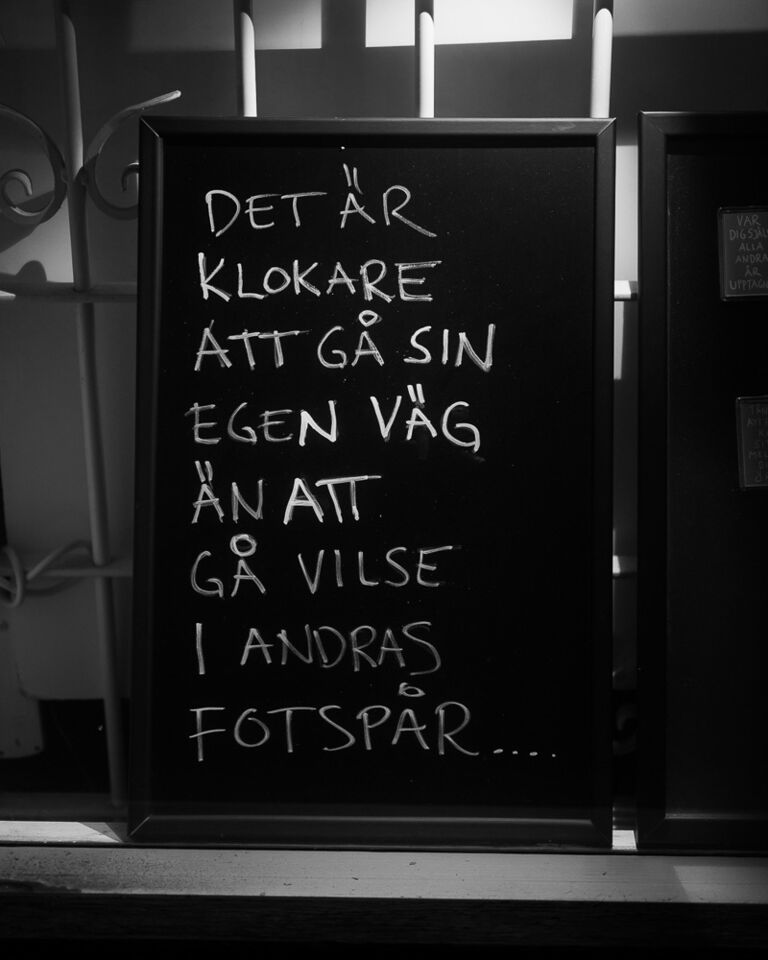 DET ÄR
KLOKARE
ATT GÅ SIN
EGEN VÄG
ÄN ATT
GÅ VILSE
I ANDRAS
FOTSPÅR.....
VAR
DIG SJÄLV
ALLA
ANDRA
ÄR